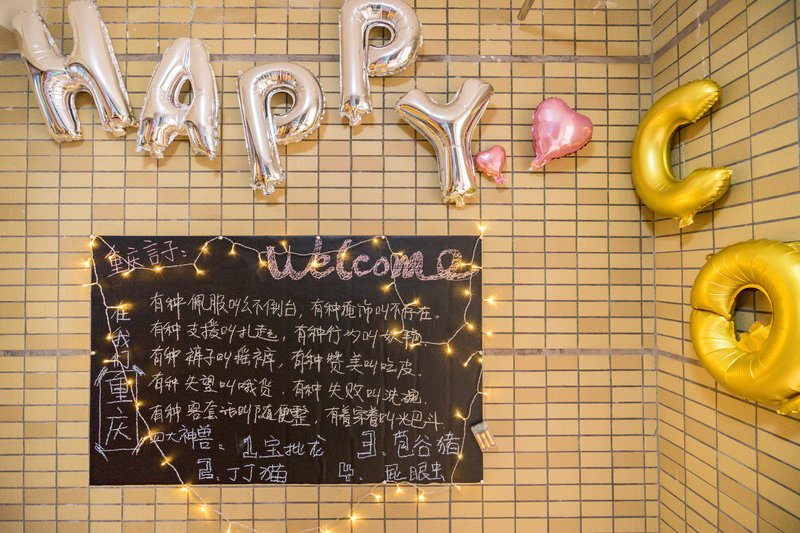 HAPPY
CO
重庆言子:
Welcome
在我们重庆
有种佩服叫么不倒台,有种掩饰叫不存在。
有种支援叫扎起,有种行为叫妖艳
有种裤子叫摇裤,有种赞美叫吃皮.
有种失望叫哦货,有种失败叫洗碗,
有种客套话叫随便整,有着穿着叫光巴斗
四大神兽:1、宝批龙 3、苞谷猪
2、丁丁猫 4、眼虫